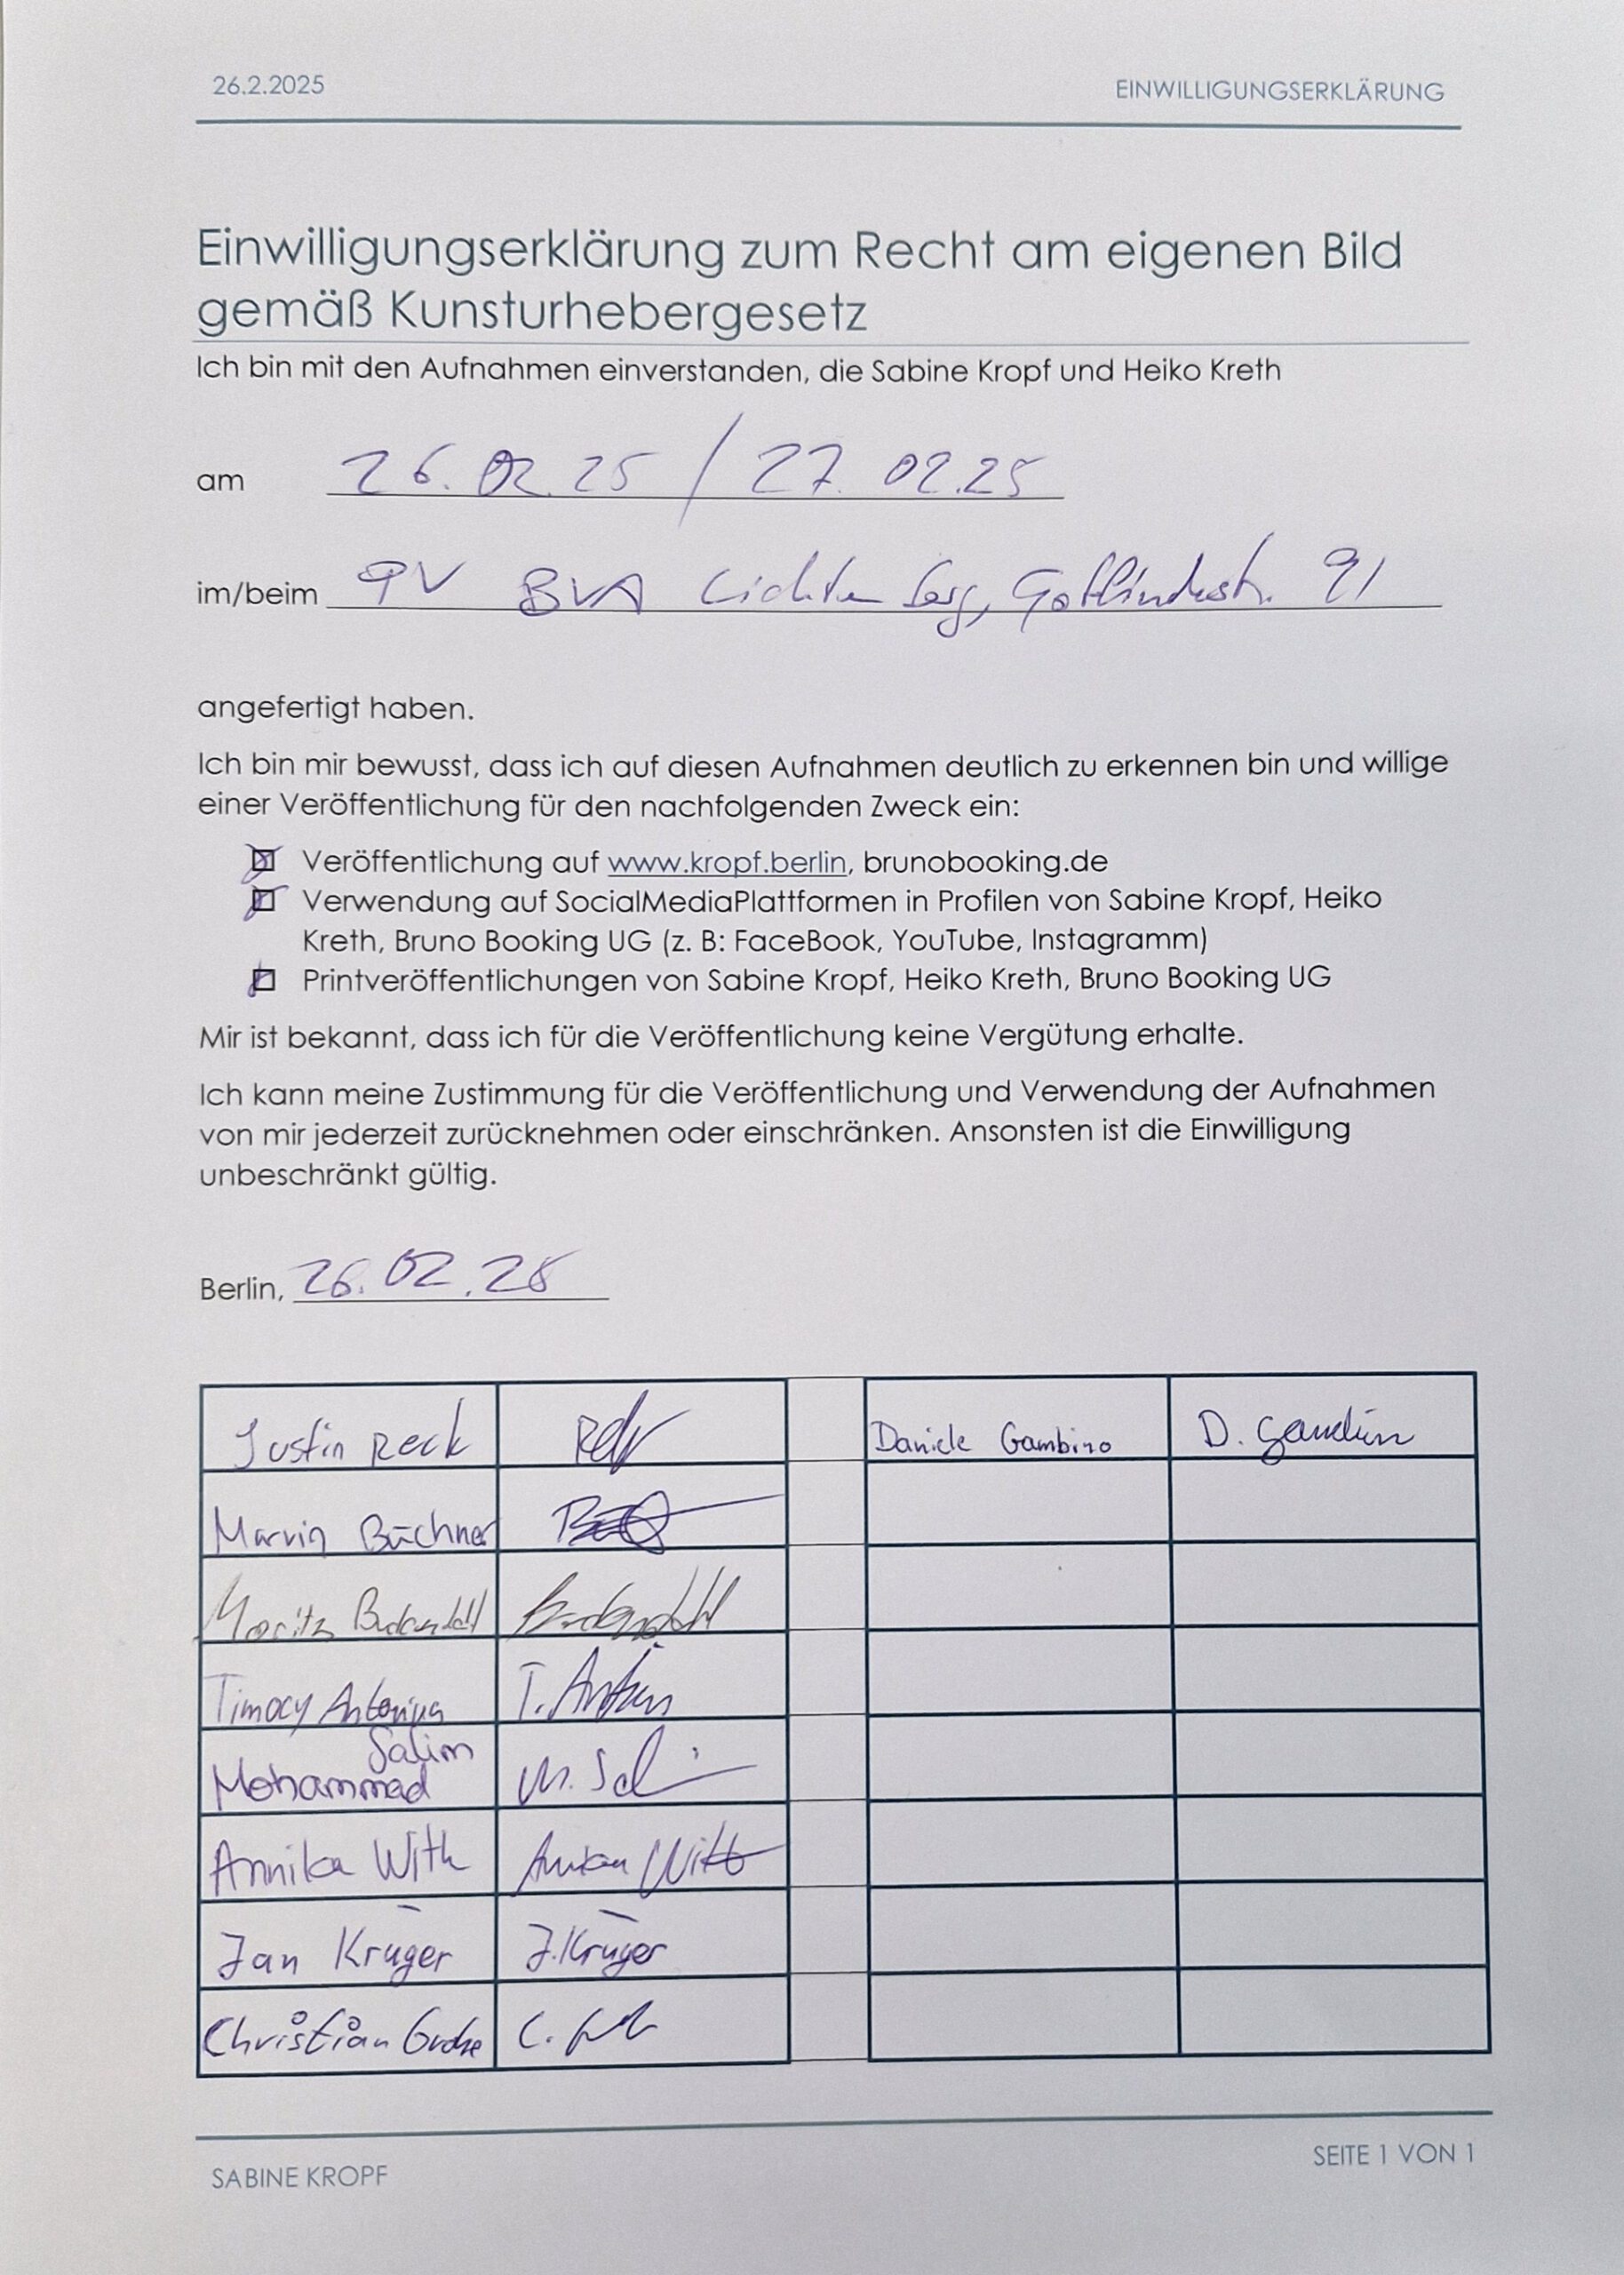 26.2.2025 EINWILLIGUNGSERKLÄRUNG
Einwilligungserklärung zum Recht am eigenen Bild
gemäß Kunsturhebergesetz
Ich bin mit den Aufnahmen einverstanden, die Sabine Kropf und Heiko Kreth
am 26.02.25 / 27.02.25
im/beim BVA Lichtenberg, Gotlindestr. 91
angefertigt haben.
Ich bin mir bewusst, dass ich auf diesen Aufnahmen deutlich zu erkennen bin und willige
einer Veröffentlichung für den nachfolgenden Zweck ein:
Veröffentlichung auf www.kropf.berlin, brunobooking.de
Verwendung auf SocialMediaPlattformen in Profilen von Sabine Kropf, Heiko
Kreth, Bruno Booking UG (z. B: FaceBook, YouTube, Instagramm)
Printveröffentlichungen von Sabine Kropf, Heiko Kreth, Bruno Booking UG
Mir ist bekannt, dass ich für die Veröffentlichung keine Vergütung erhalte.
Ich kann meine Zustimmung für die Veröffentlichung und Verwendung der Aufnahmen
von mir jederzeit zurücknehmen oder einschränken. Ansonsten ist die Einwilligung
unbeschränkt gültig.
Berlin, 26.02.25
Justin Reck Daniele Gambino D.
Marvin Büchner
Moritz
Timocy T.
Salim
Mohammad M.
Annika With
Jan Krüger J. Krüger
Christian C.
SABINE KROPF SEITE 1 VON 1